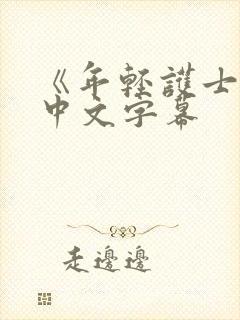 《年轻護士
中文字幕
走邊邊